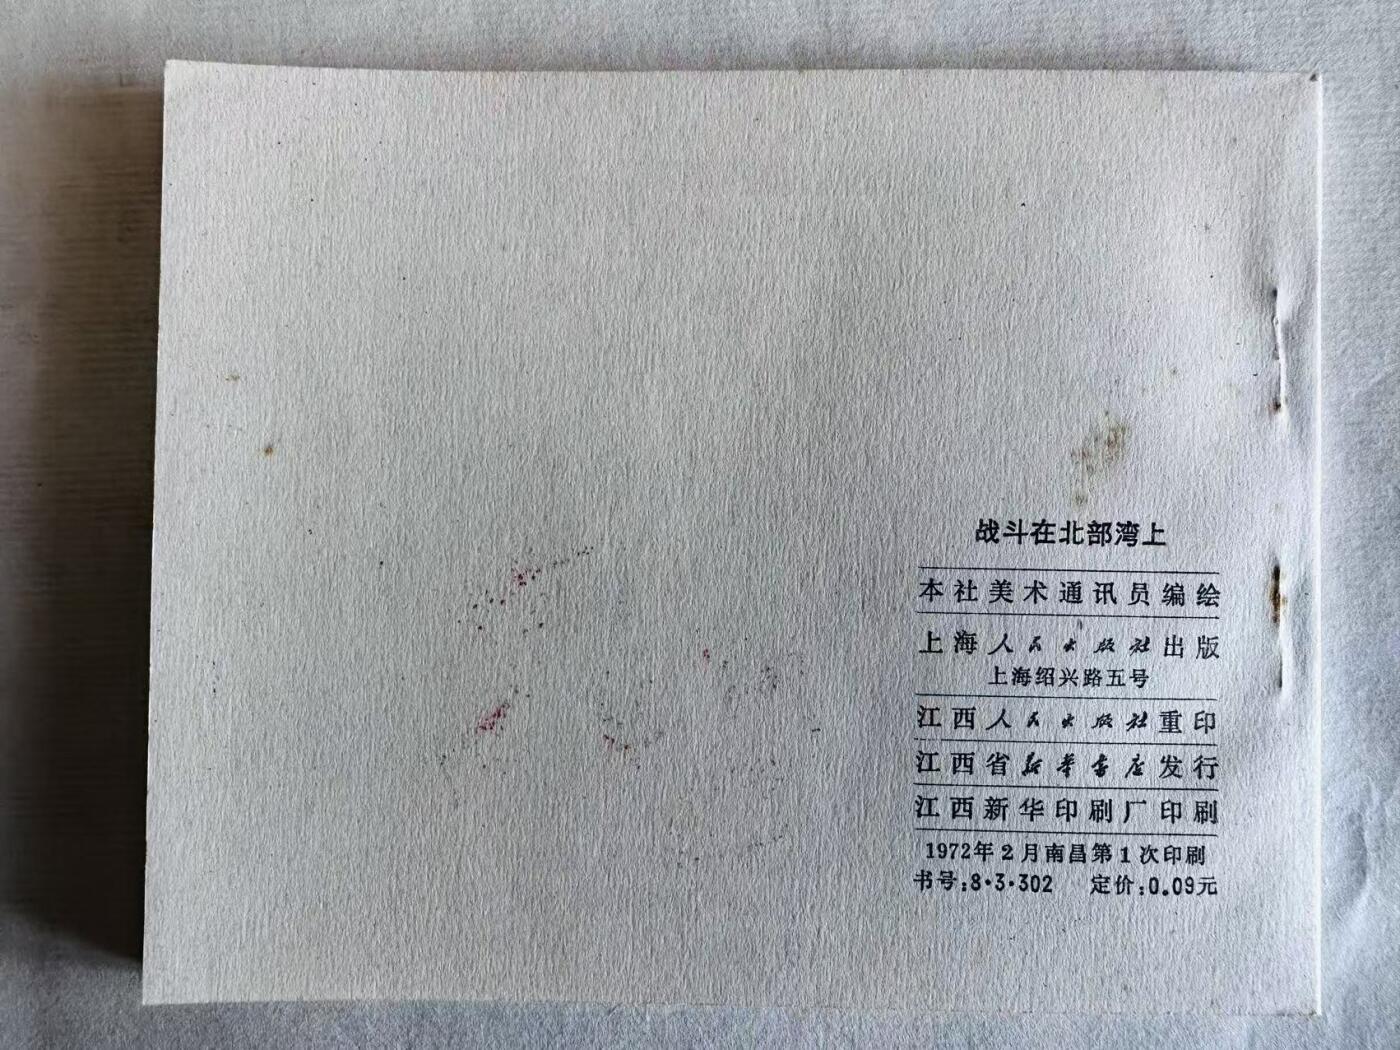 战斗在北部湾上
本社美术通讯员编绘
上海人民出版社出版
上海绍兴路五号
江西人民出版社重印
江西省新华书店发行
江西新华印刷厂印刷
1972年2月南昌第1次印刷
书号:8·3·302 定价:0.09元